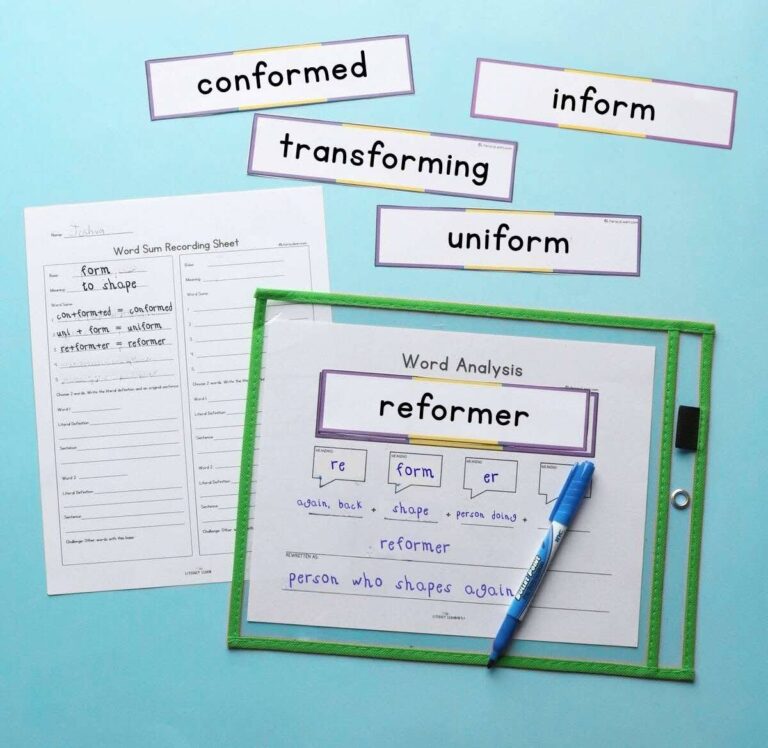 conformed
inform
transforming
uniform
Name: Joshua
Word Sum Recording Sheet
Base: form
Meaning: to shape
Word Sums:
1. con+form+ed = conformed
2. uni + form = uniform
3. re+form+er = reformer
4.
5.
Choose 2 words. Write the literal definition and an original sentence
Word 1
Literal Definition
Sentence
Word 2
Literal Definition
Sentence
Challenge: Other words with this base:
Base:
Meaning:
Word Sums:
1.
2.
3.
4.
5.
Word 1
Literal Definition
Sentence
Word 2
Literal Definition
Sentence
Word Analysis
reformer
MEANING:
MEANING:
MEANING:
re
form
er
again, back + shape + person doing +
reformer
REWRITTEN AS:
person who shapes again